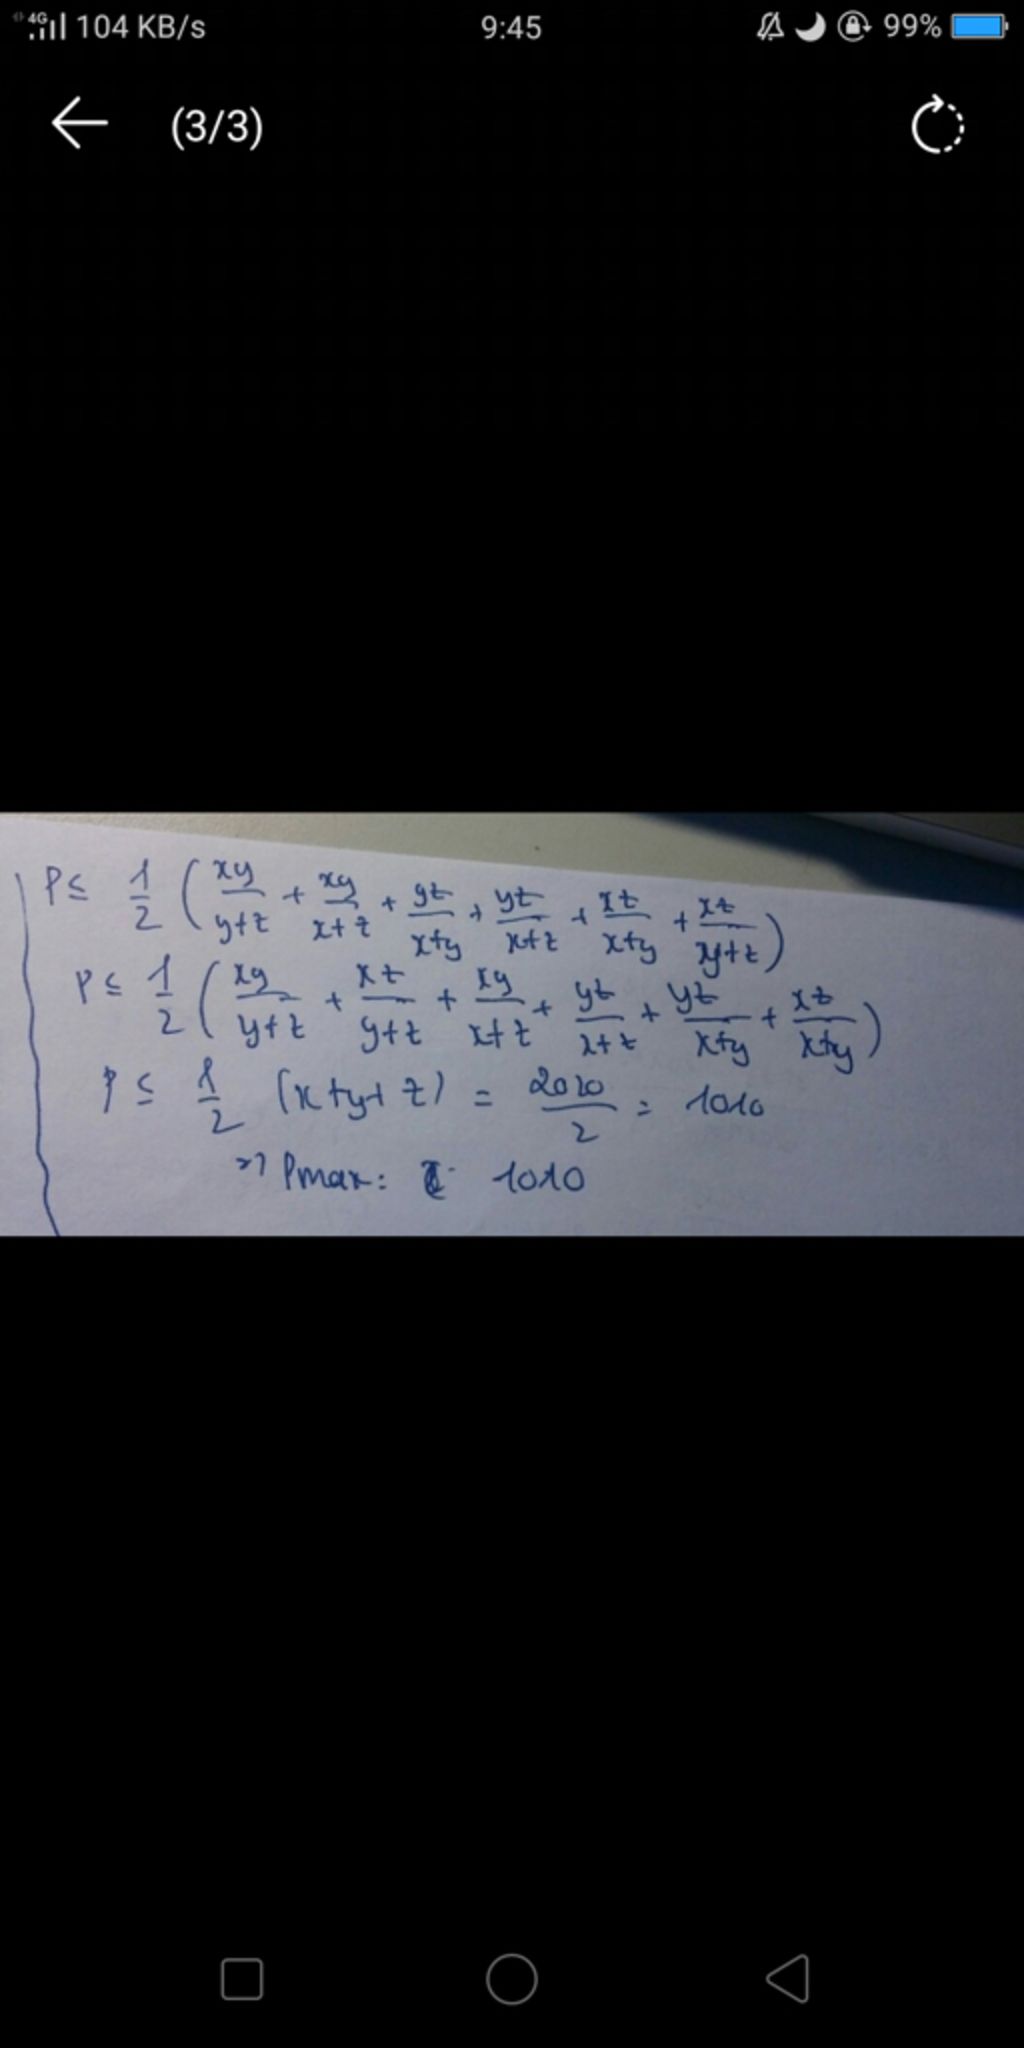 4G 104 KB/s 9:45 99%
(3/3)
P ≤ 1/2 (xy/(y+z) + xy/(x+z) + yz/(x+y) + yz/(x+z) + xz/(x+y) + xz/(y+z))
P ≤ 1/2 (xy/(y+z) + xz/(y+z) + xy/(x+z) + yz/(x+z) + yz/(x+y) + xz/(x+y))
P ≤ 1/2 (x+y+z) = 2020/2 = 1010
=> Pmax: 1010